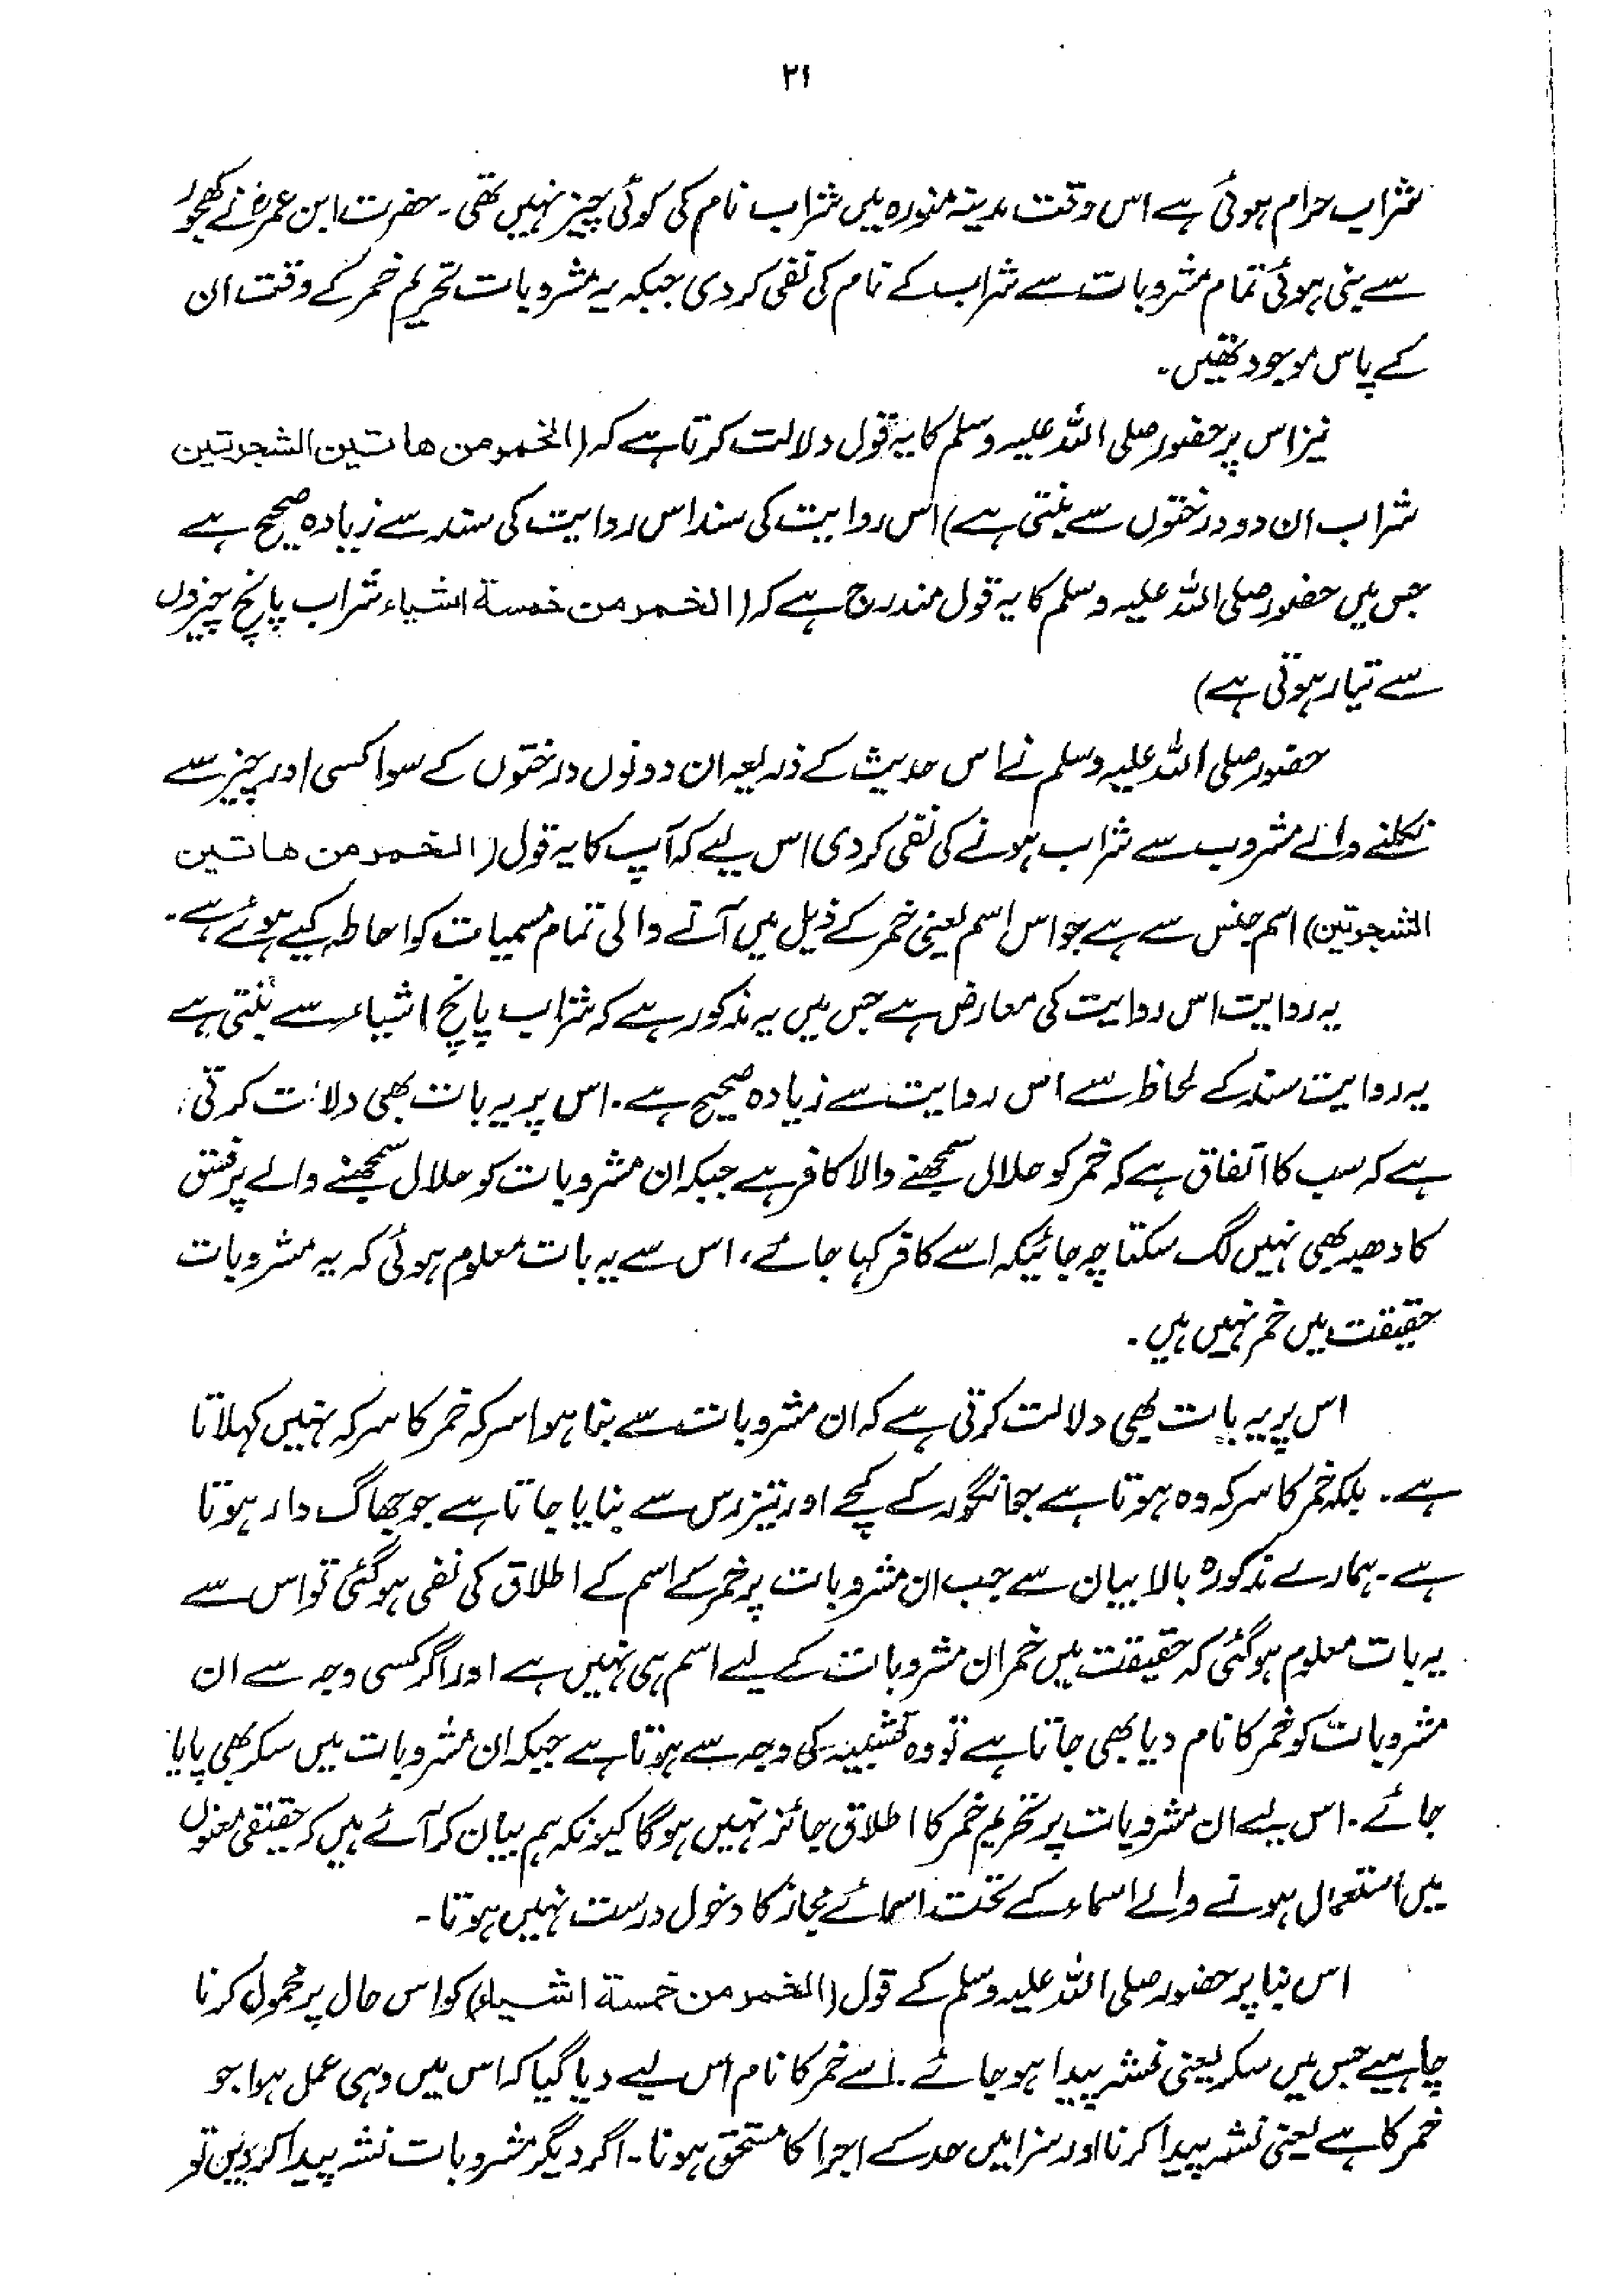 ۲۱
شراب حرام ہوئی ہے اس وقت مدینہ منورہ میں شراب نام کی کوئی چیز نہیں تھی۔ حضرت ابن عمرؓ نے کھجور
سے بنی ہوئی تمام مشروبات سے شراب کے نام کی نفی کردی جبکہ یہ مشروبات تحریم خمر کے وقت ان
کے پاس موجود تھیں۔
نیز اس پر حضور صلی اللہ علیہ وسلم کا یہ قول دلالت کرتا ہے کہ (الخمر من ھاتین الشجرتین
شراب ان دو درختوں سے بنتی ہے) اس روایت کی سند اس روایت کی سند سے زیادہ صحیح ہے
جس میں حضور صلی اللہ علیہ وسلم کا یہ قول مندرج ہے کہ (الخمر من خمسة اشیاء شراب پانچ چیزوں
سے تیار ہوتی ہے)
حضور صلی اللہ علیہ وسلم نے اس حدیث کے ذریعہ ان دونوں درختوں کے سوا کسی اور چیز سے
نکلنے والے مشروب سے شراب ہونے کی نفی کردی اس لیے کہ آپ کا یہ قول (الخمر من ھاتین
الشجرتین) اسم جنس سے ہے جو اس اسم یعنی خمر کے ذیل میں آنے والی تمام مسمیات کو احاطہ کیے ہوئے ہے۔
یہ روایت اس روایت کی معارض ہے جس میں یہ مذکور ہے کہ شراب پانچ اشیاء سے بنتی ہے
یہ روایت سند کے لحاظ سے اس روایت سے زیادہ صحیح ہے۔ اس پر یہ بات بھی دلالت کرتی
ہے کہ سب کا اتفاق ہے کہ خمر کو حلال سمجھنے والا کافر ہے جبکہ ان مشروبات کو حلال سمجھنے والے پر فسق
کا دھبہ بھی نہیں لگ سکتا چہ جائیکہ اسے کافر کہا جائے، اس سے یہ بات معلوم ہوئی کہ یہ مشروبات
حقیقت میں خمر نہیں ہیں۔
اس پر یہ بات بھی دلالت کرتی ہے کہ ان مشروبات سے بنا ہوا سرکہ خمر کا سرکہ نہیں کہلاتا
ہے۔ بلکہ خمر کا سرکہ وہ ہوتا ہے جو انگور کے کچے اور تیز رس سے بنایا جاتا ہے جو جھاگ دار ہوتا
ہے۔ ہمارے مذکورہ بالا بیان سے جب ان مشروبات پر خمر کے اسم کے اطلاق کی نفی ہوگئی تو اس سے
یہ بات معلوم ہوگئی کہ حقیقت میں خمر ان مشروبات کے لیے اسم ہی نہیں ہے اور اگر کسی وجہ سے ان
مشروبات کو خمر کا نام دیا بھی جاتا ہے تو وہ تشبیہ کی وجہ سے ہوتا ہے جبکہ ان مشروبات میں سکر بھی پایا
جائے۔ اس لیے ان مشروبات پر تحریم خمر کا اطلاق جائز نہیں ہوگا کیونکہ ہم بیان کر آئے ہیں کہ حقیقی معنوں
میں استعمال ہونے والے اسماء کے تحت اسمائے مجاز کا دخول درست نہیں ہوتا۔
اس بنا پر حضور صلی اللہ علیہ وسلم کے قول (الخمر من خمسة اشیاء) کو اس حال پر محمول کرنا
چاہیے جس میں سکر یعنی نشہ پیدا ہو جائے۔ اسے خمر کا نام اس لیے دیا گیا کہ اس میں وہی عمل ہوا جو
خمر کا ہے یعنی نشہ پیدا کرنا اور سزا میں حد کے اجرا کا مستحق ہونا۔ اگر دیگر مشروبات نشہ پیدا کر دیں تو